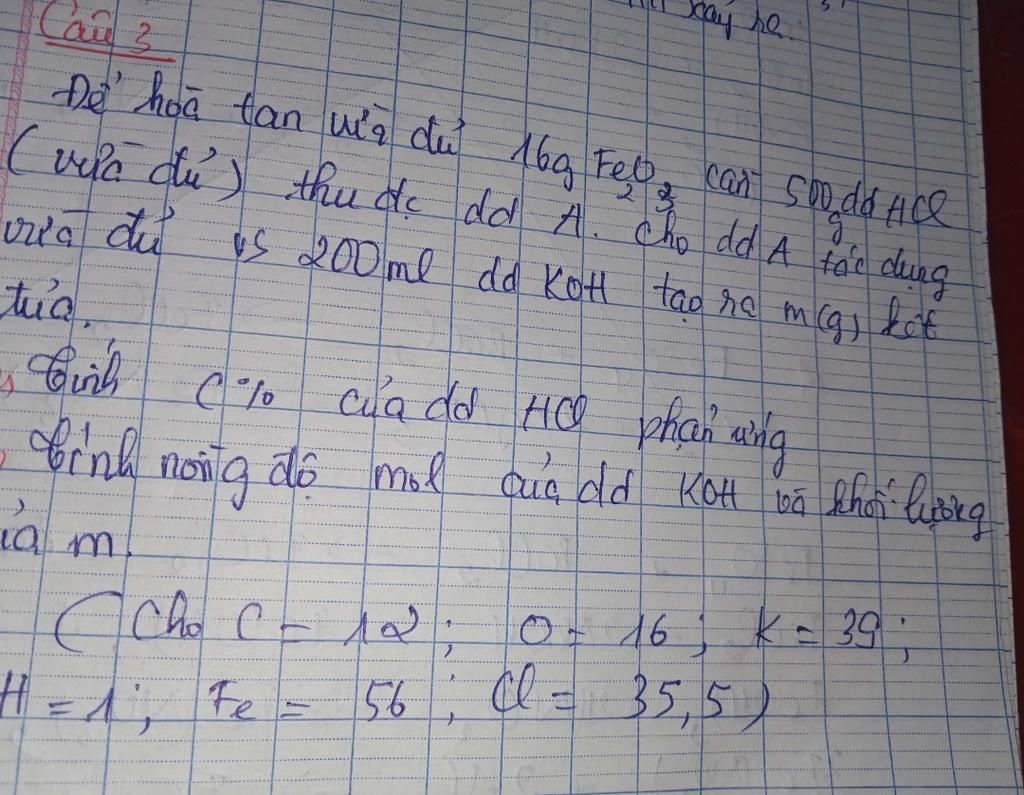 xảy ra.
Câu 3
Để hoà tan vừa đủ 16g Fe2O3 cần 500g dd HCl
(vừa đủ) thu đc dd A. Cho dd A tác dụng
vừa đủ vs 200ml dd KOH tạo ra m(g) kết
tủa.
Tính C% của dd HCl phản ứng
Tính nồng độ mol của dd KOH và khối lượng
ủa m.
(Cho C = 12; O = 16; K = 39;
H = 1; Fe = 56; Cl = 35,5)